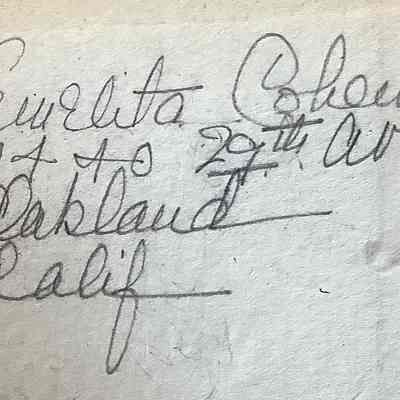 Emelita Cohen
29th Av
Oakland
Calif